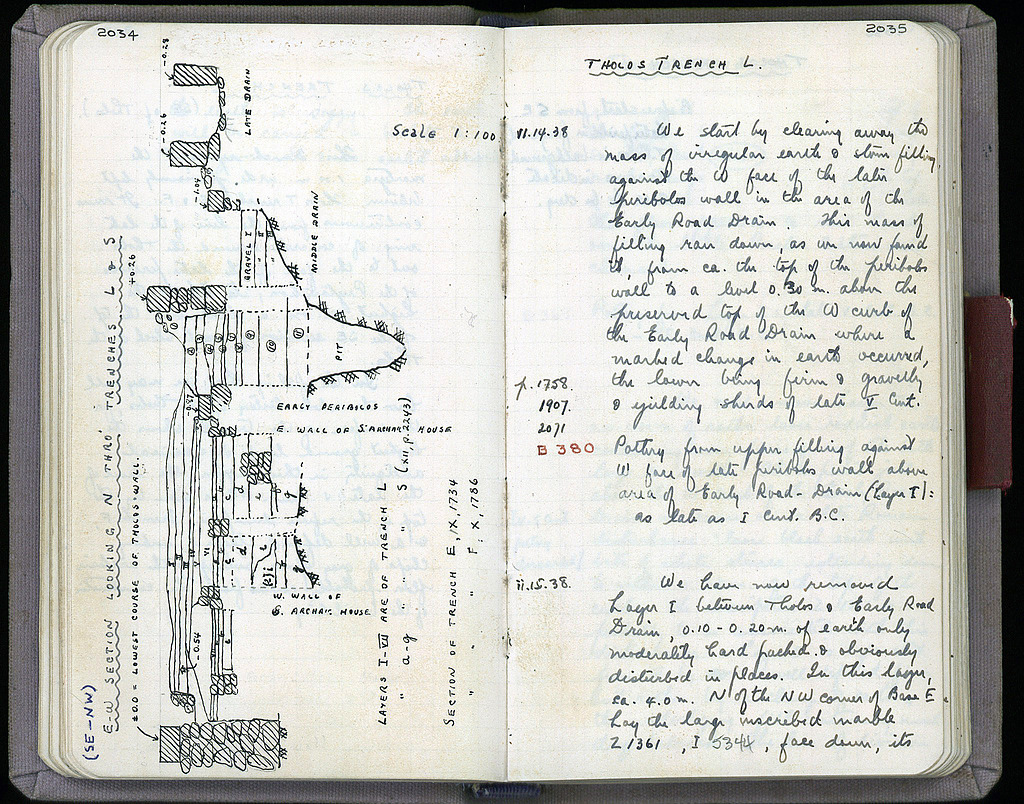 2034
-0.28
LATE DRAIN
-0.26
Scale 1:100
-1.04
GRAVEL I
" II
" III
MIDDLE DRAIN
+0.26
PIT
-0.87
EARLY PERIBOLOS
E. WALL OF S. ARCHAIC HOUSE
W. WALL OF
S. ARCHAIC HOUSE
-0.54
(SE-NW)
E-W SECTION LOOKING N THRO' TRENCHES L & S
±0.0 = LOWEST COURSE OF THOLOS WALL.
LAYERS I-VII ARE OF TRENCH L
" a-g " " " S (XII, p. 2243)
SECTION OF TRENCH E, IX, 1734
" " " F: X, 1786
2035
THOLOS TRENCH L.
II.14.38
We start by clearing away the
mass of irregular earth & stone filling,
against the W face of the later
peribolos wall in the area of the
Early Road Drain. This mass of
filling ran down, as we now found
it, from ca. the top of the peribolos
wall to a level 0.30 m. above the
preserved top of the W curb of
the Early Road Drain where a
marked change in earth occurred,
the lower being firm & gravelly
& yielding sherds of late V Cent.
p. 1758.
1907.
2071
B 380
Pottery from upper filling against
W face of late peribolos wall above
area of Early Road-Drain (Layer I):
as late as I Cent. B.C.
II.15.38.
We have now removed
Layer I between Tholos & Early Road
Drain, 0.10-0.20 m. of earth only
moderately hard packed & obviously
disturbed in places. In this layer,
ca. 4.0 m. N of the NW corner of Base E
lay the large inscribed marble
Σ 1361, I 5344, face down, its